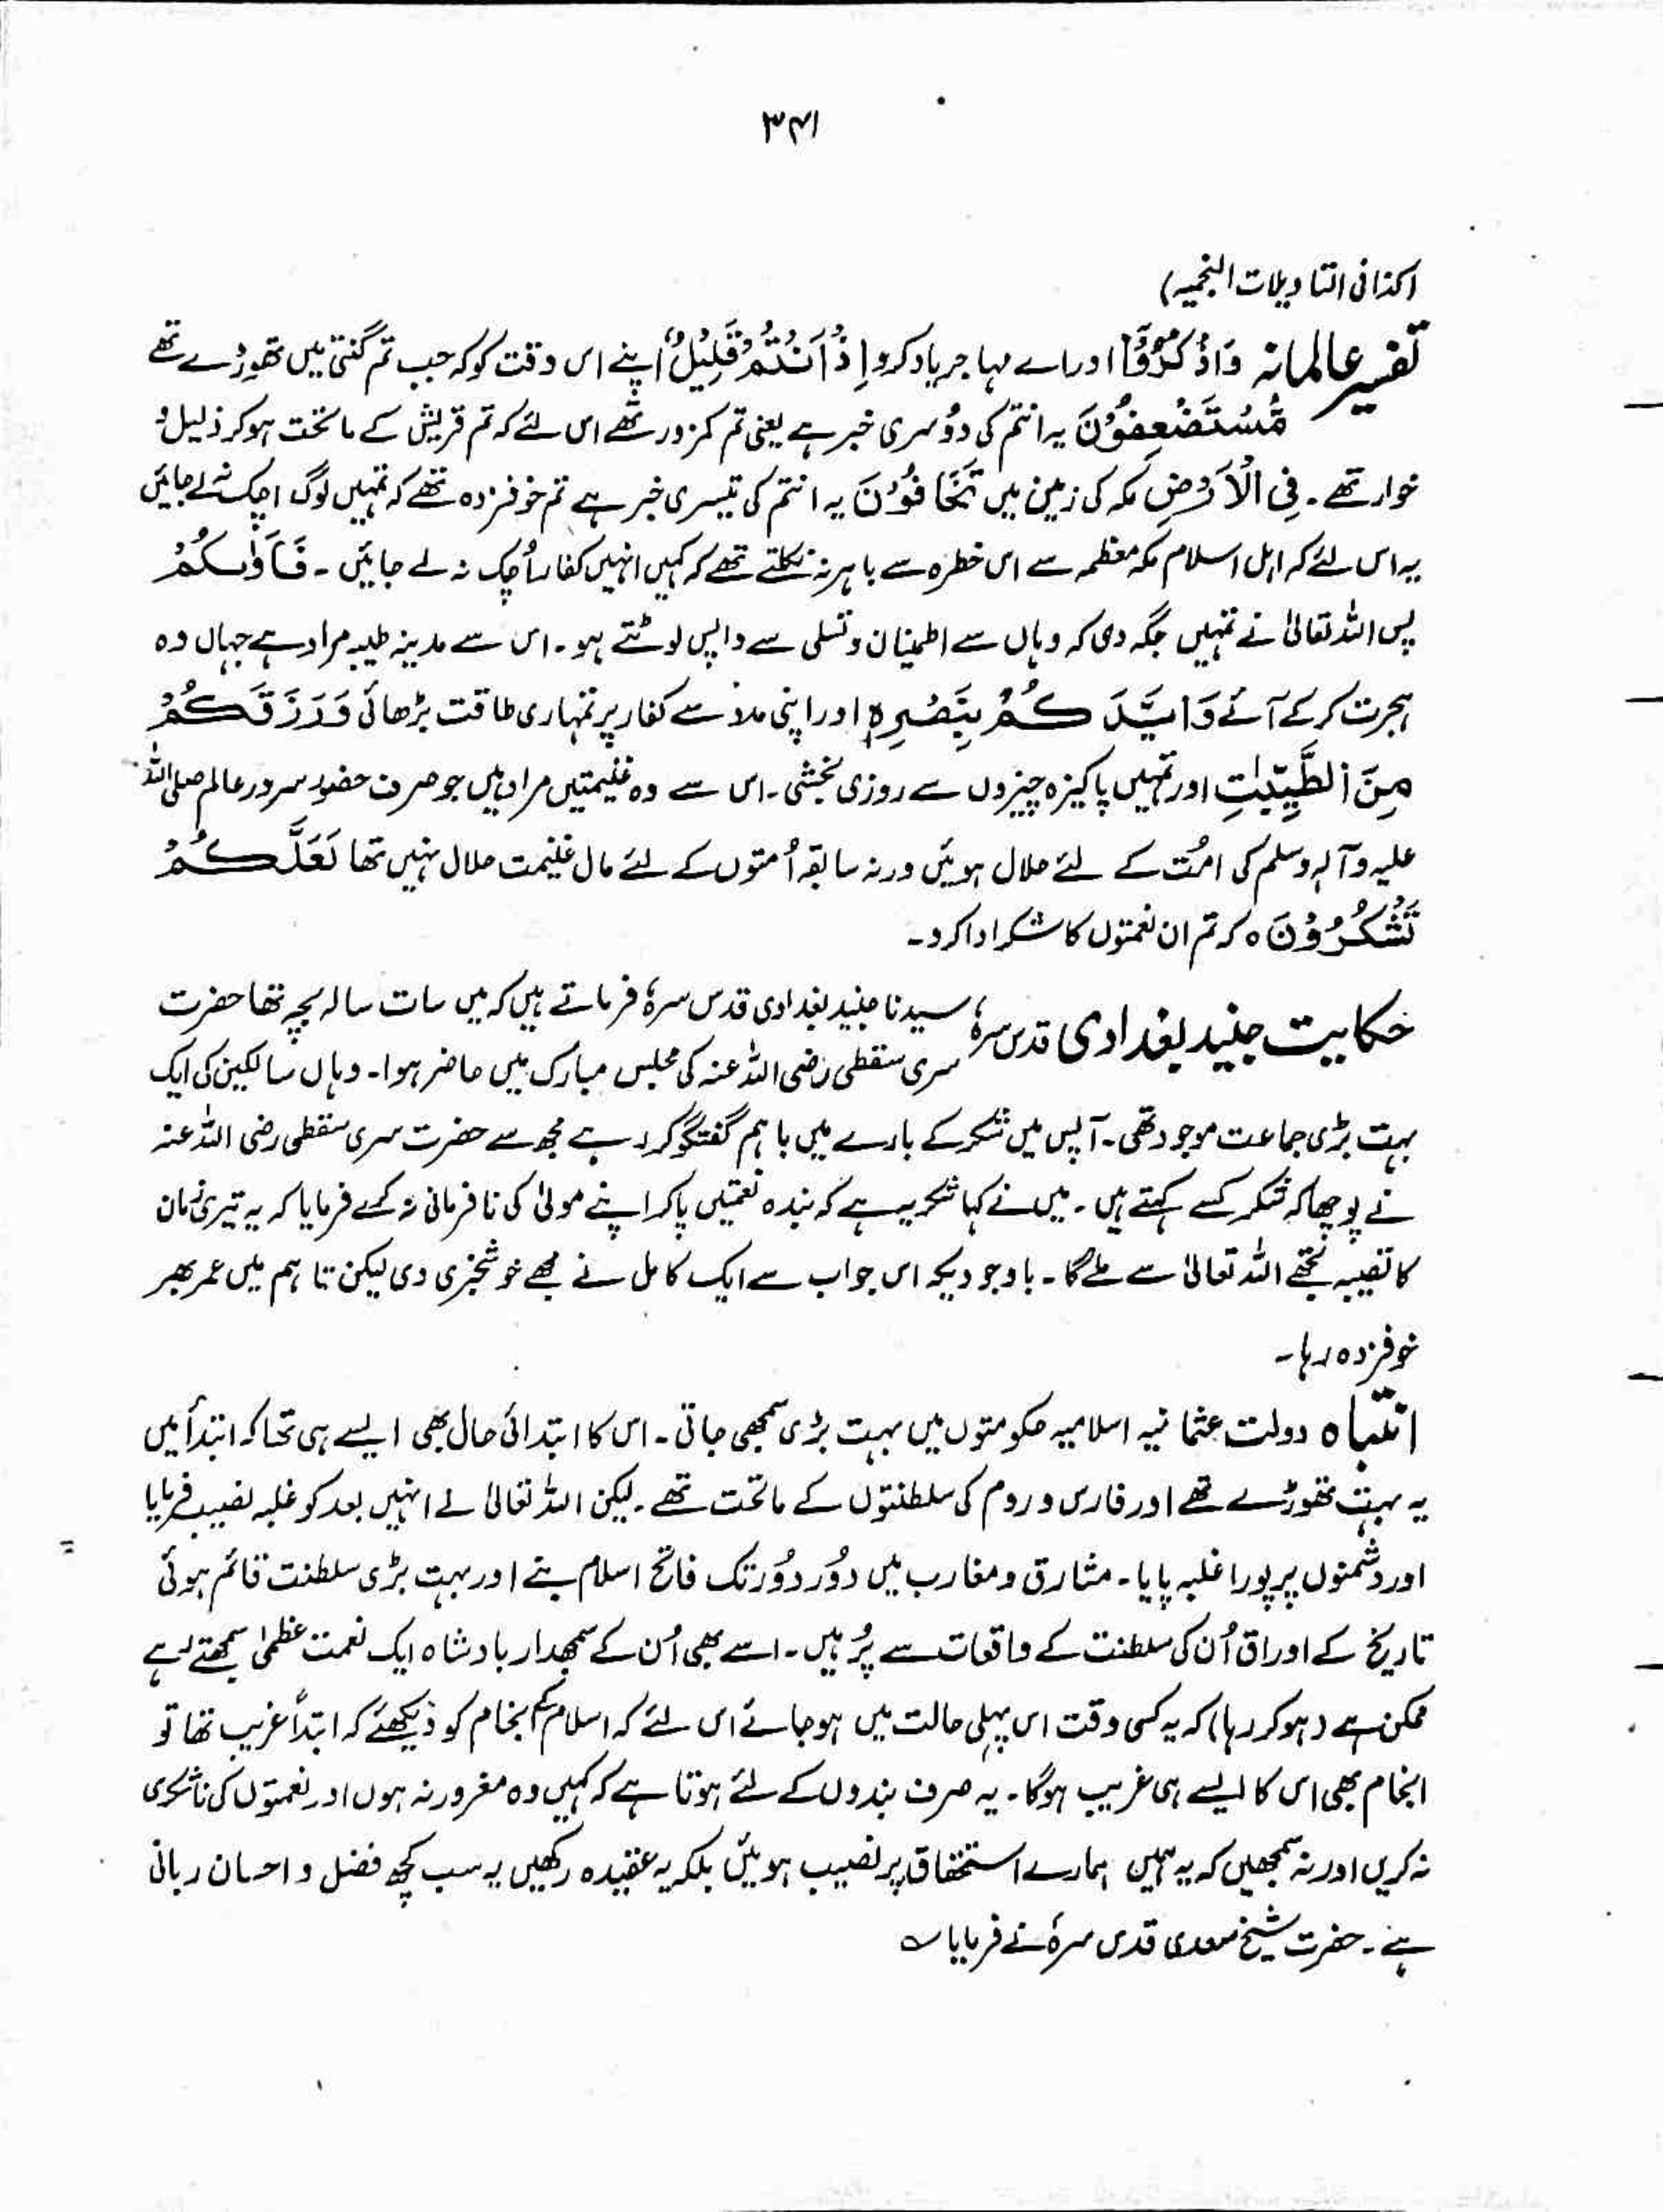 ۳۴۱
(کذافی التاویلات النجمیہ)
تفسیر عالمانہ وَاذْكُرُوْٓا اور اے مہاجر یاد کرو اِذْ اَنْتُمْ قَلِيْلٌ اپنے اس وقت کو کہ جب تم گنتی میں تھوڑے تھے
مُّسْتَضْعَفُوْنَ یہ انتم کی دوُسری خبر ہے یعنی تم کمزور تھے اس لئے کہ تم قریش کے ماتحت ہو کر ذلیل و
خوار تھے۔ فِى الْاَرْضِ مکہ کی زمین میں تَخَافُوْنَ یہ انتم کی تیسری خبر ہے تم خوفزدہ تھے کہ تمہیں لوگ اچک نہ لے جائیں
یہ اس لئے کہ اہل اسلام مکہ معظمہ سے اس خطرہ سے باہر نہ نکلتے تھے کہ کہیں انہیں کفار اُچک نہ لے جائیں۔ فَاٰوٰىكُمْ
پس اللہ تعالیٰ نے تمہیں جگہ دی کہ وہاں سے اطمینان و تسلی سے واپس لوٹتے ہو۔ اس سے مدینہ طیبہ مراد ہے جہاں وہ
ہجرت کر کے آئے وَاَيَّدَكُمْ بِنَصْرِهٖ اور اپنی مدد سے کفار پر تمہاری طاقت بڑھائی وَرَزَقَكُمْ
مِنَ الطَّيِّبٰتِ اور تمہیں پاکیزہ چیزوں سے روزی بخشی۔ اس سے وہ غنیمتیں مراد ہیں جو صرف حضور سرور عالم صلی اللہ
علیہ وآلہ وسلم کی امُت کے لئے حلال ہوئیں ورنہ سابقہ اُمتوں کے لئے مال غنیمت حلال نہیں تھا لَعَلَّكُمْ
تَشْكُرُوْنَ ہ کہ تم ان نعمتوں کا شکر ادا کرو۔
حکایت جنید بغدادی قدس سرہٗ سیدنا جنید بغدادی قدس سرہٗ فرماتے ہیں کہ میں سات سالہ بچہ تھا حضرت
سری سقطی رضی اللہ عنہ کی مجلس مبارک میں حاضر ہوا۔ وہاں سالکین کی ایک
بہت بڑی جماعت موجود تھی۔ آپس میں شکر کے بارے میں باہم گفتگو کر رہے مجھ سے حضرت سری سقطی رضی اللہ عنہ
نے پوچھا کہ شکر کسے کہتے ہیں۔ میں نے کہا شکر یہ ہے کہ بندہ نعمتیں پا کر اپنے مولیٰ کی نافرمانی نہ کرے فرمایا کہ یہ تیری زبان
کا نصیبہ تجھے اللہ تعالیٰ سے ملے گا۔ باوجودیکہ اس جواب سے ایک کامل نے مجھے خوشخبری دی لیکن تاہم میں عمر بھر
خوفزدہ رہا۔
انتباہ دولت عثمانیہ اسلامیہ حکومتوں میں بہت بڑی سمجھی جاتی۔ اس کا ابتدائی حال بھی ایسے ہی تھا کہ ابتدأ میں
یہ بہت تھوڑے تھے اور فارس و روم کی سلطنتوں کے ماتحت تھے۔ لیکن اللہ تعالیٰ نے انہیں بعد کو غلبہ نصیب فرمایا
اور دشمنوں پر پورا غلبہ پایا۔ مشارق و مغارب میں دوُر دوُر تک فاتح اسلام بنے اور بہت بڑی سلطنت قائم ہوئی
تاریخ کے اوراق اُن کی سلطنت کے واقعات سے پُر ہیں۔ اسے بھی اُن کے سمجھدار بادشاہ ایک نعمت عظمیٰ سمجھتے رہے
ممکن ہے (ہو کر رہا) کہ یہ کسی وقت اس پہلی حالت میں ہو جائے اس لئے کہ اسلام کے انجام کو دیکھئے کہ ابتدأ غریب تھا تو
انجام بھی اس کا ایسے ہی غریب ہوگا۔ یہ صرف بندوں کے لئے ہوتا ہے کہ کہیں وہ مغرور نہ ہوں اور نعمتوں کی ناشکری
نہ کریں اور نہ سمجھیں کہ یہ ہمیں ہمارے استحقاق پر نصیب ہوئیں بلکہ یہ عقیدہ رکھیں یہ سب کچھ فضل و احسان ربانی
ہے۔ حضرت شیخ سعدی قدس سرہٗ نے فرمایا ؎